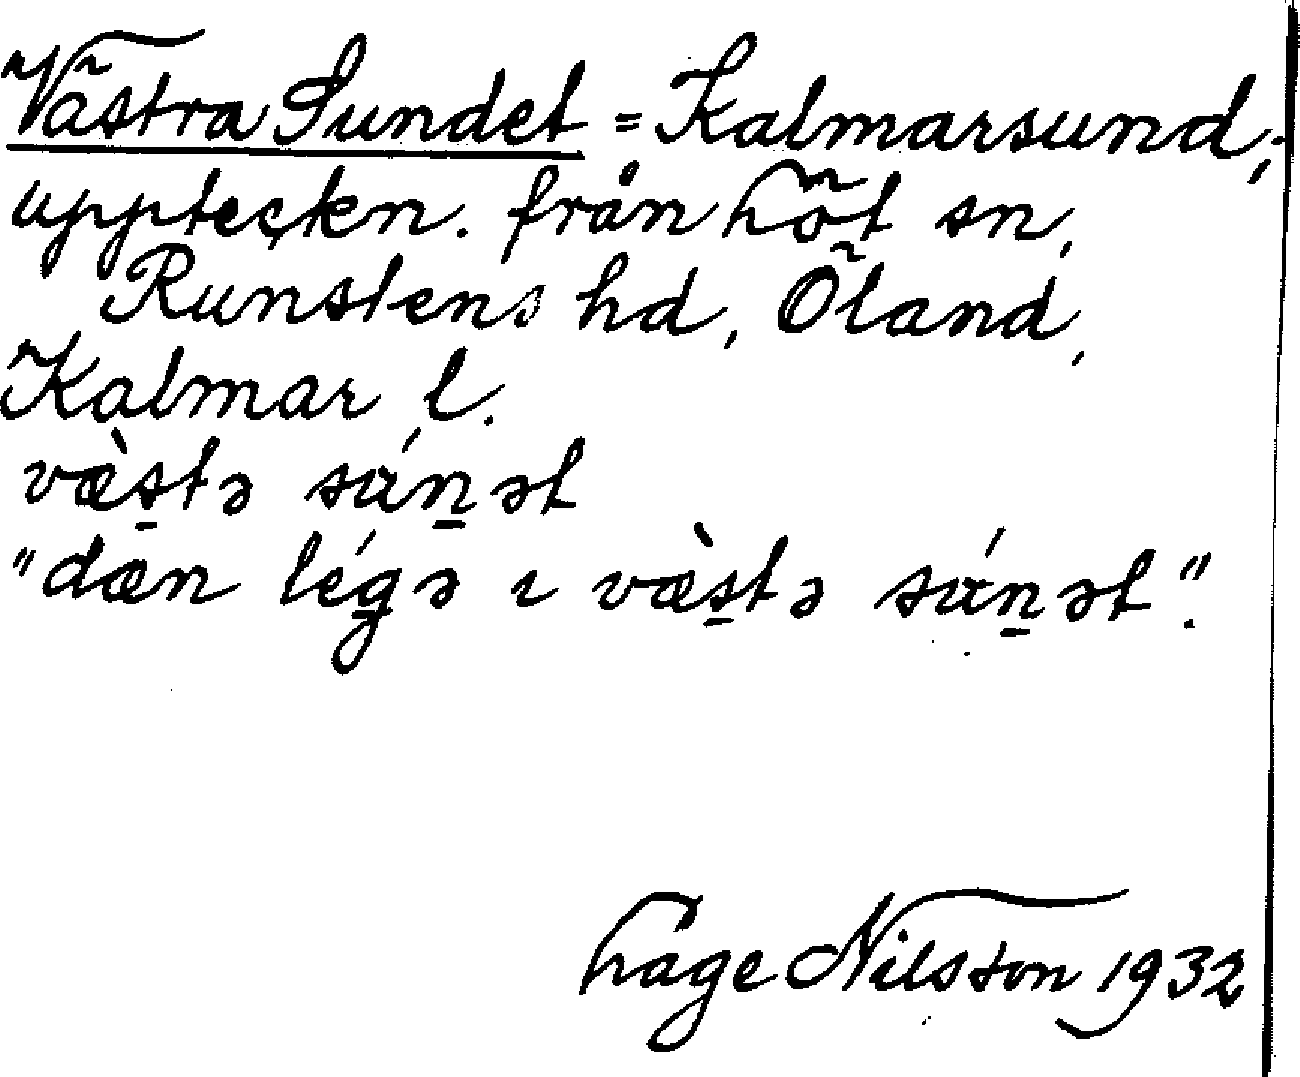 Västra Sundet = Kalmarsund;
uppteckn. från Löt sn,
Runstens hd, Öland,
Kalmar l.
væ̀s̱tə sɑ́ṉət
"dæn lég̱ə ɪ væ̀s̱tə sɑ́ṉət".
Lage Nilsson 1932